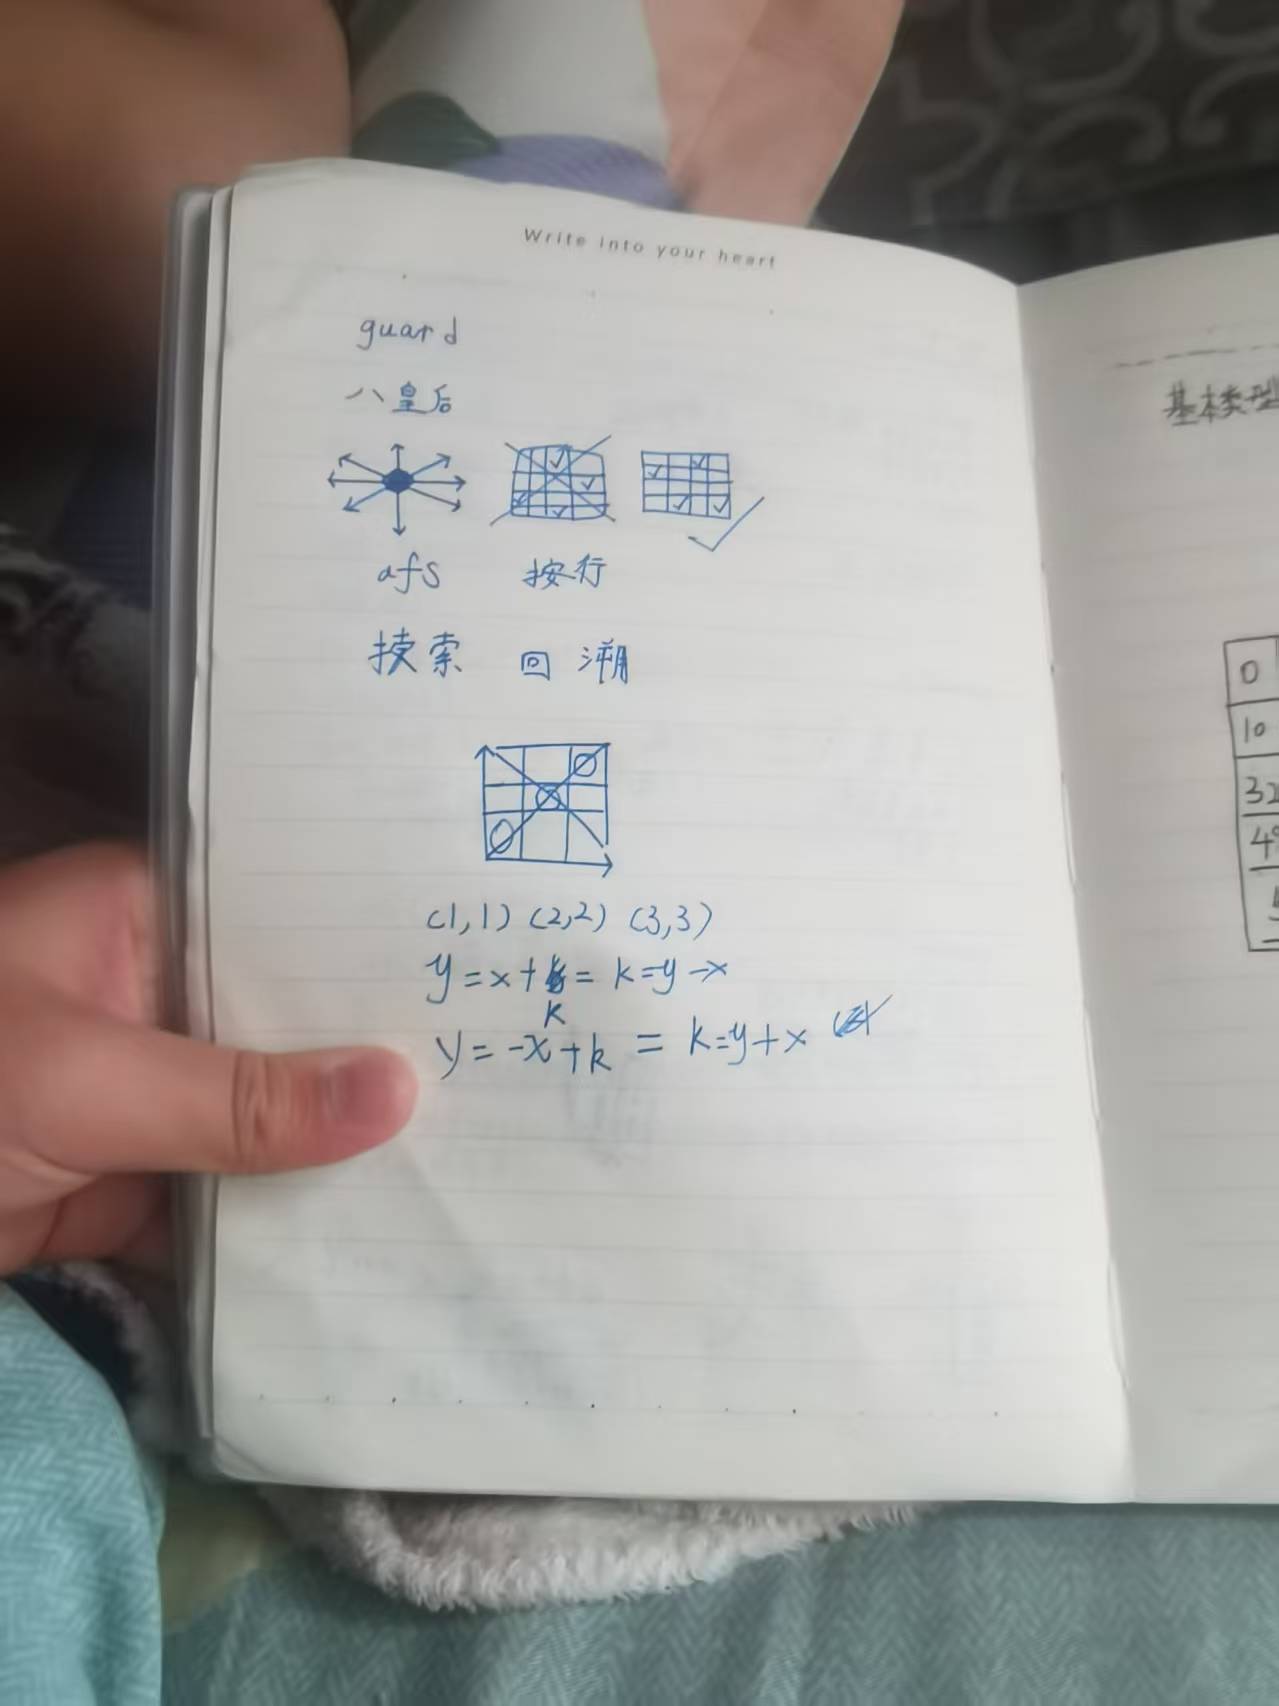 Write into your heart
guard
八皇后
afs 按行
搜索 回溯
(1,1) (2,2) (3,3)
y=x+k= k=y-x
k
y=-x+k = k=y+x
基本类型
0
10
32
4
5